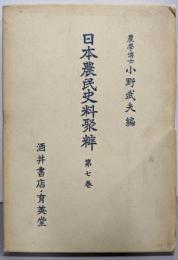 農學博士 小野武夫編
日本農民史料聚粹 第七巻
酒井書店・育英堂